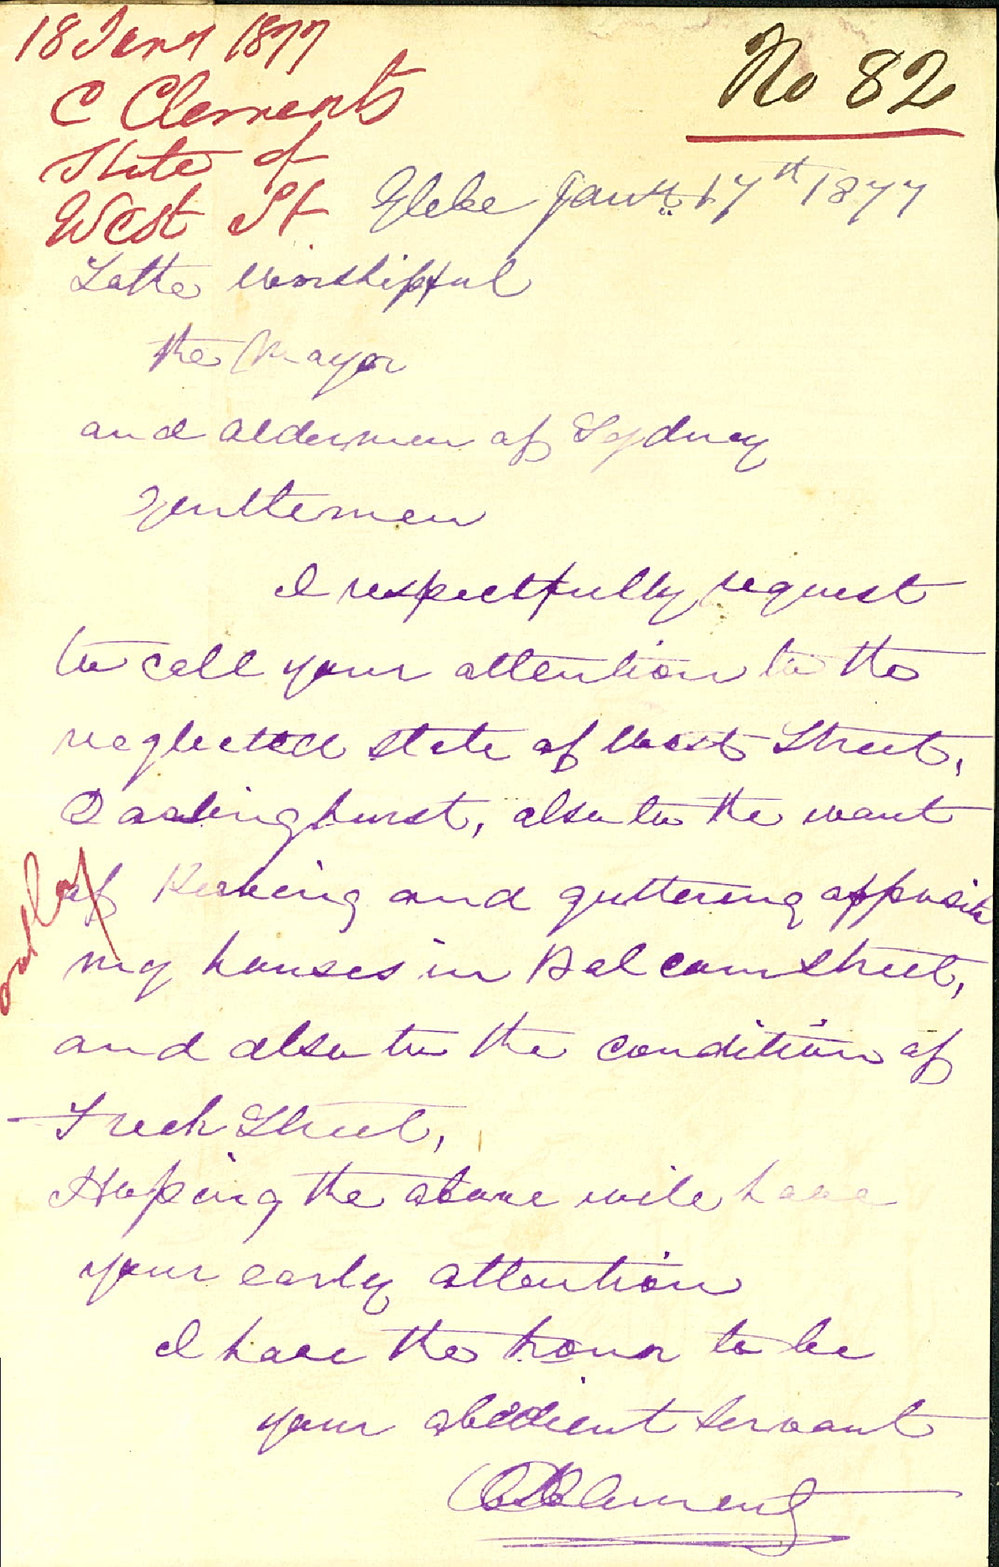 18 Jany 1877
No 82
C Clements
State of
West St
Glebe Jany 17th 1877
To the Worshipful
the Mayor
and Aldermen of Sydney
Gentlemen
I respectfully request
to call your attention to the
neglected state of West Street,
Darlinghurst, also to the want
of Kerbing and guttering opposite
my houses in Balcom Street,
and also to the condition of
Street,
Hoping the above will have
your early attention
I have the honor to be
your obedient Servant
C Clements